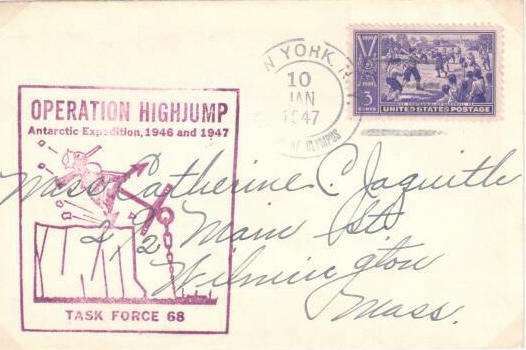 OPERATION HIGHJUMP
Antarctic Expedition, 1946 and 1947
TASK FORCE 68
YORK, N
10
JAN
1947
OLYMPUS
3
CENTS
UNITED STATES POSTAGE
Miss Catherine C. Jaquith
Main St
Wilmington
Mass.